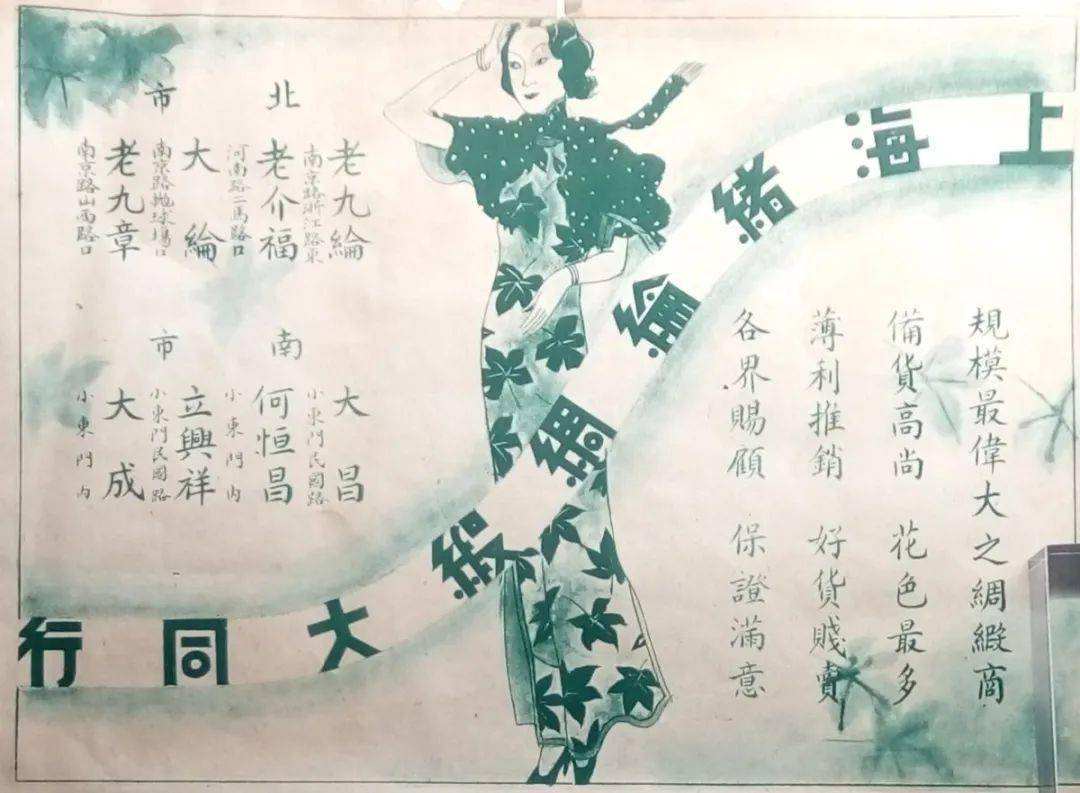 上海緒綸綢緞大同行
規模最偉大之綢緞商
備貨高尚 花色最多
薄利推銷 好貨賤賣
各界賜顧 保證滿意
北市
老九綸
南京路浙江路東
老介福
河南路二馬路口
大綸
南京路抛球場口
老九章
南京路山西路口
南市
大昌
小東門民國路
何恒昌
小東門內
立興祥
小東門民國路
大成
小東門內